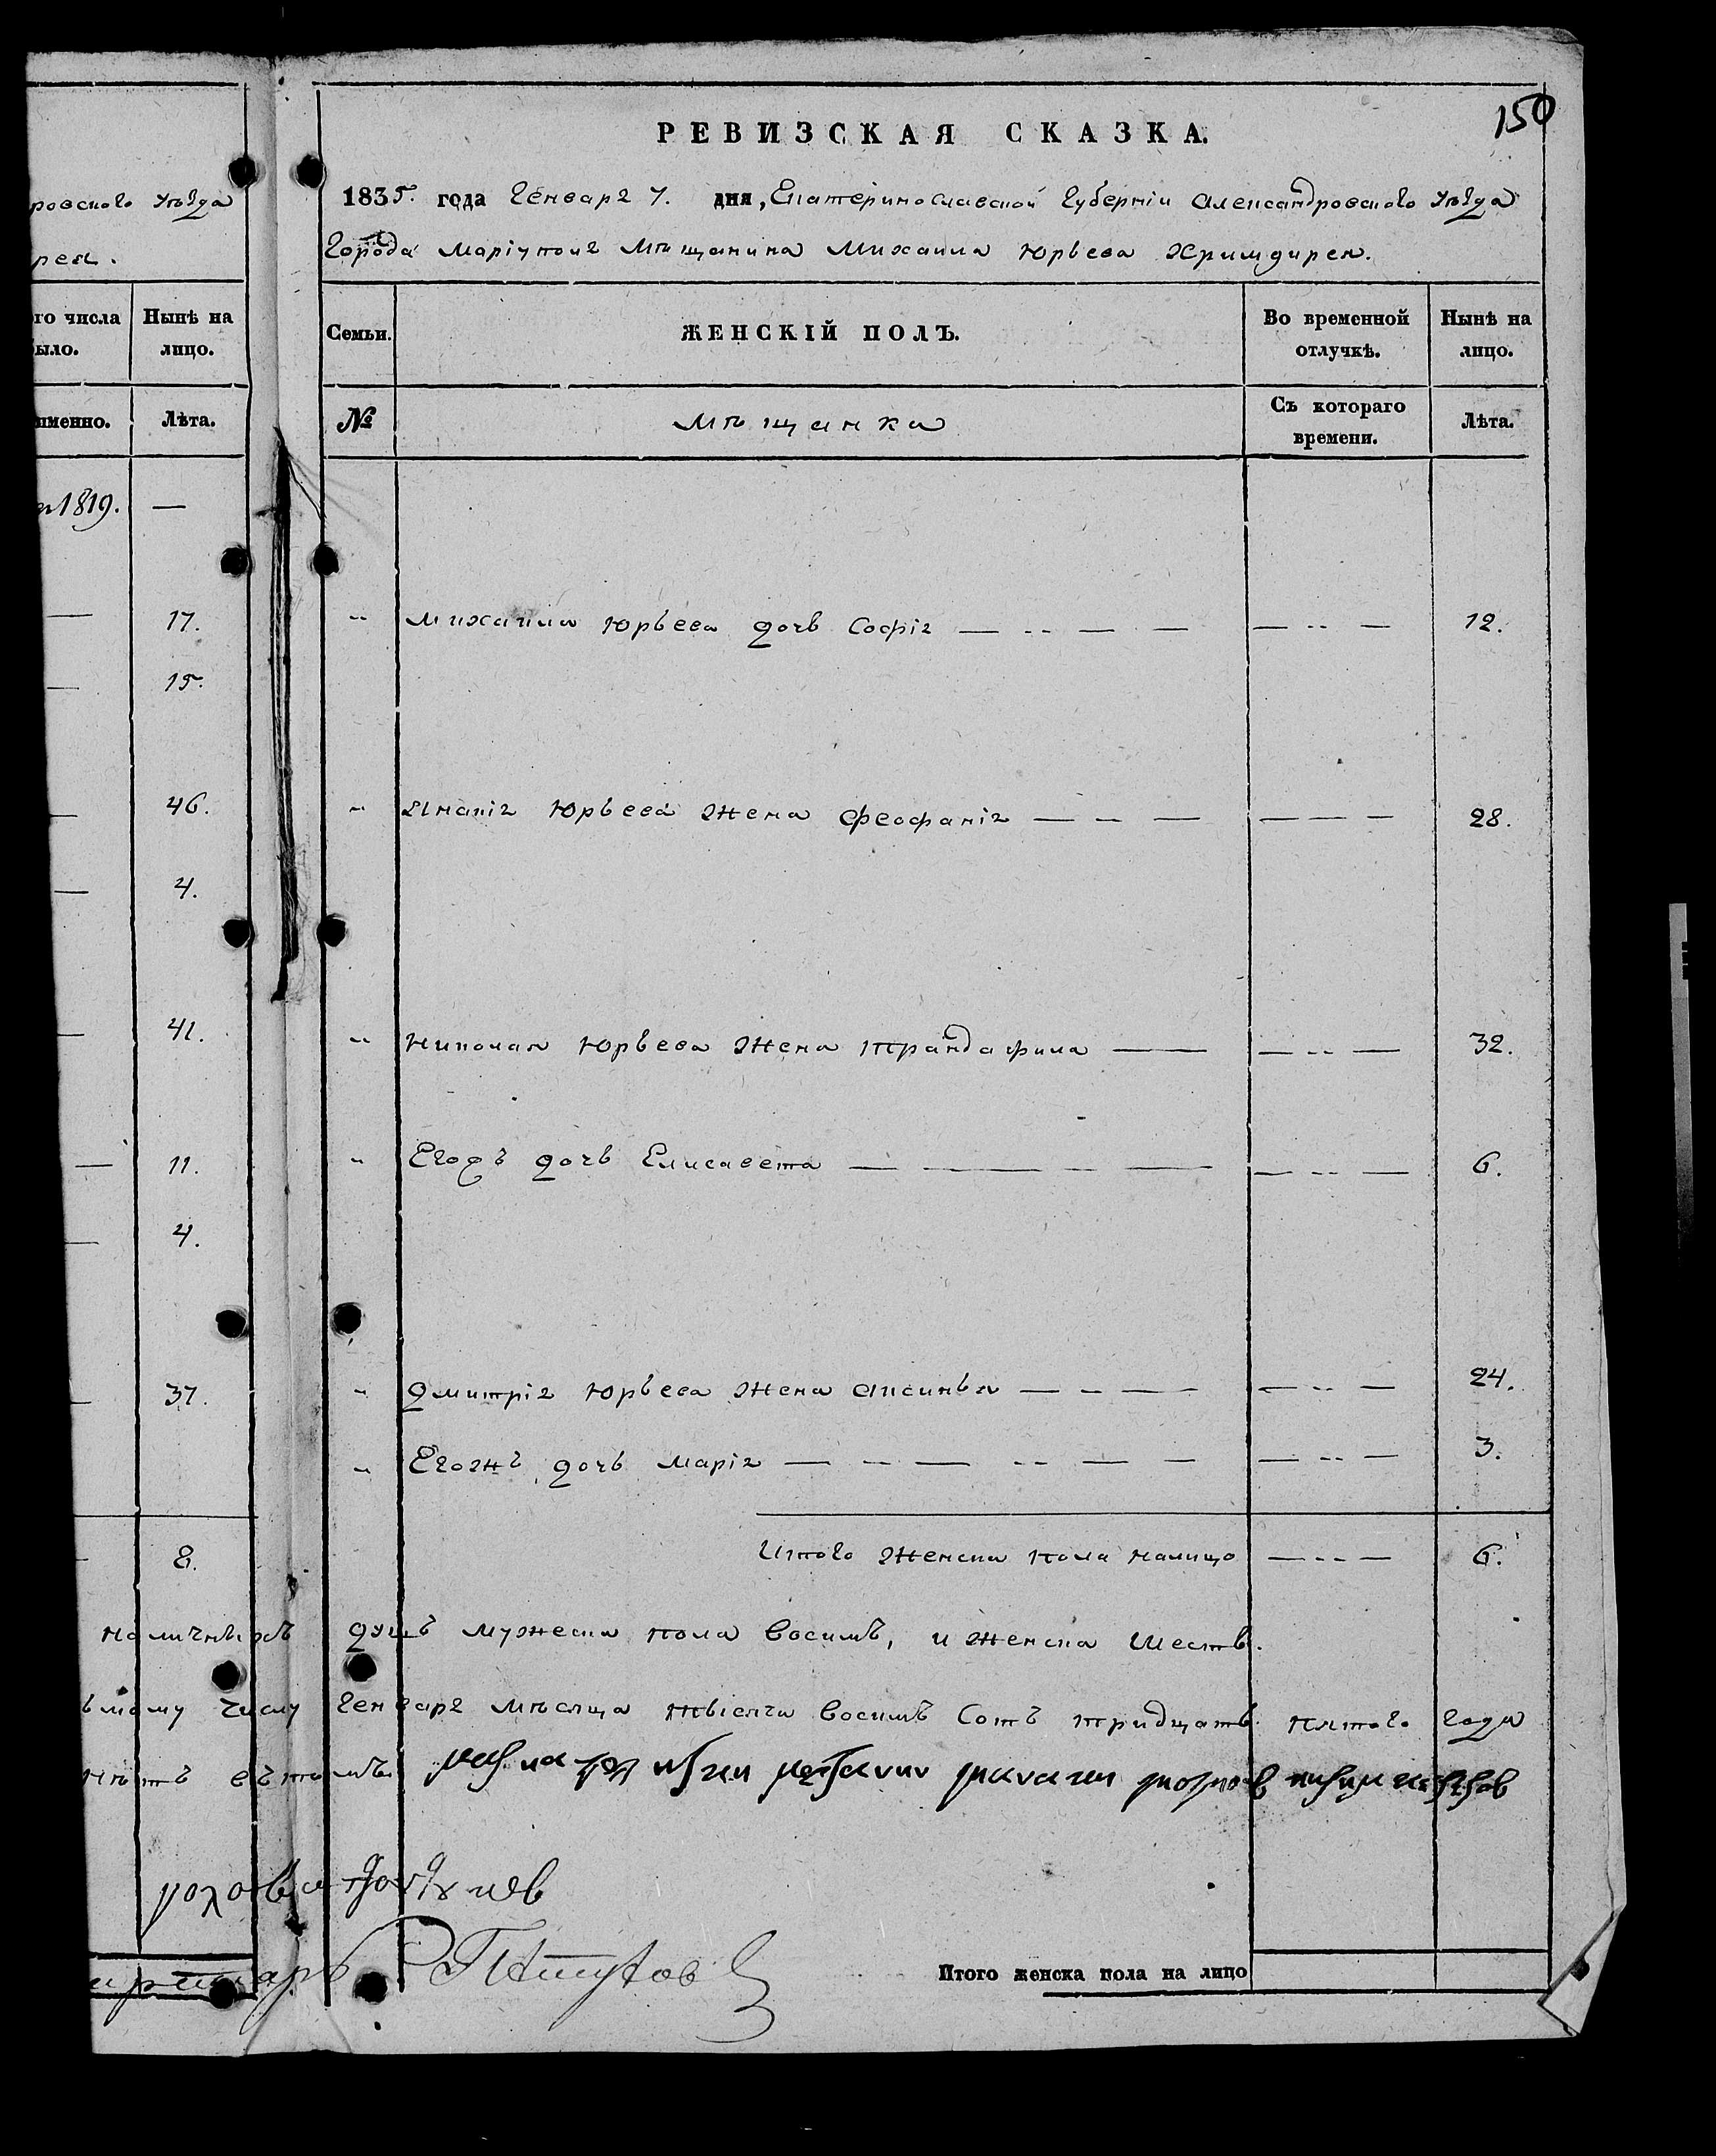 150
РЕВИЗСКАЯ СКАЗКА.
ровского уѣзда
рея.
1835. года Генваря 7. дня, Екатеринославской Губерніи Александровского уѣзда
Города Маріуполя Мѣщанина Михаила Юрьева
го числа было.
Нынѣ на лицо.
именно.
Лѣта.
Семьи.
ЖЕНСКІЙ ПОЛЪ.
Во временной отлучкѣ.
Нынѣ на лицо.
№
Мѣщанка
Съ котораго времени.
Лѣта.
1819. —
— 17.
" Михаила Юрьева дочь Софія — — — 12.
— 15.
— 46.
" Юрьева жена Феофанія — — — 28.
— 4.
— 41.
" Николая Юрьева жена Трандафила — — — 32.
— 11.
" Егожъ дочь Елисавета — — — 6.
— 4.
— 37.
" Дмитрія Юрьева жена Аксинья — — — 24.
" Егожъ дочь Марія — — — 3.
— 8.
Итого женска пола налицо — — 6.
наличныхъ душъ мужеска пола восимъ, и женска шесть.
ьмому числу Генваря мѣсяца тысяча восимъ сотъ тридцать пятого года
нѣтъ
Итого женска пола на лицо